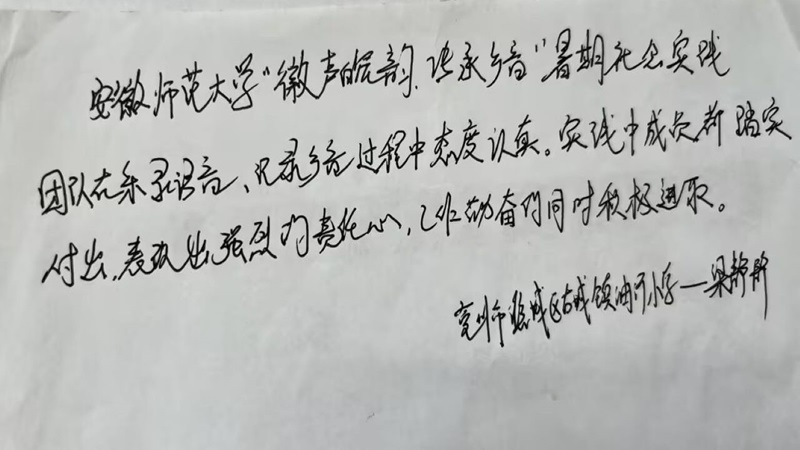 安徽师范大学“徽声皖韵,传承乡音”暑期社会实践
团队在采录语音、记录乡音过程中态度认真。实践中成员们踏实
付出,表现出强烈的责任心,工作勤奋的同时积极进取。
亳州市谯城区古城镇油河小学——梁静静